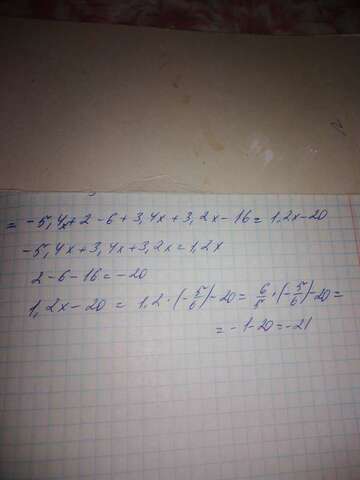 = -5,4x+2-6+3,4x+3,2x-16=1,2x-20
-5,4x+3,4x+3,2x=1,2x
2-6-16=-20
1,2x-20 = 1,2·(-5/6)-20= 6/5·(-5/6)-20=
= -1-20=-21